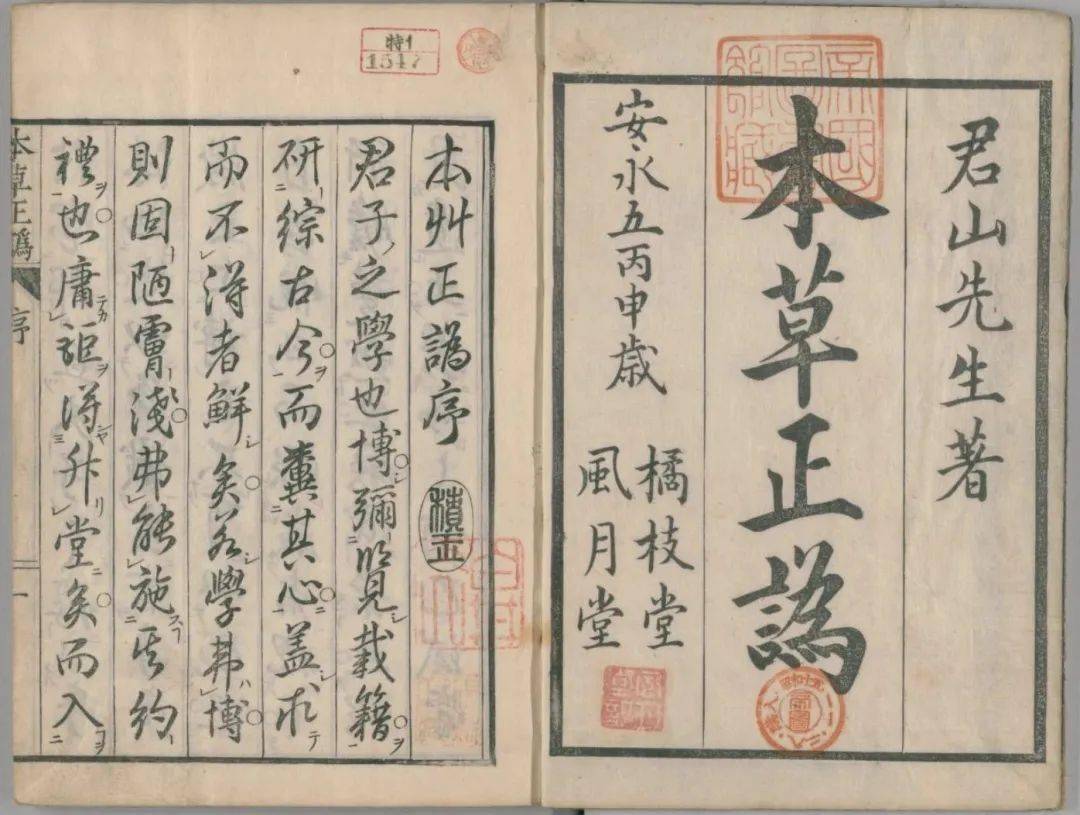 君山先生著
本草正譌
安永五丙申歳
橘枝堂
風月堂
特1
1547
本艸正譌序
君子之學也博彌覧載籍
研綜古今而糞其心盖求
而不淂者鮮矣若學弗博
則固陋膚淺弗能施其約
禮也庸詎淂升堂矣而入
本草正譌
序
一